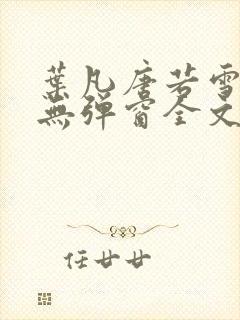 葉凡唐若雪
無彈窗全文
任廿廿